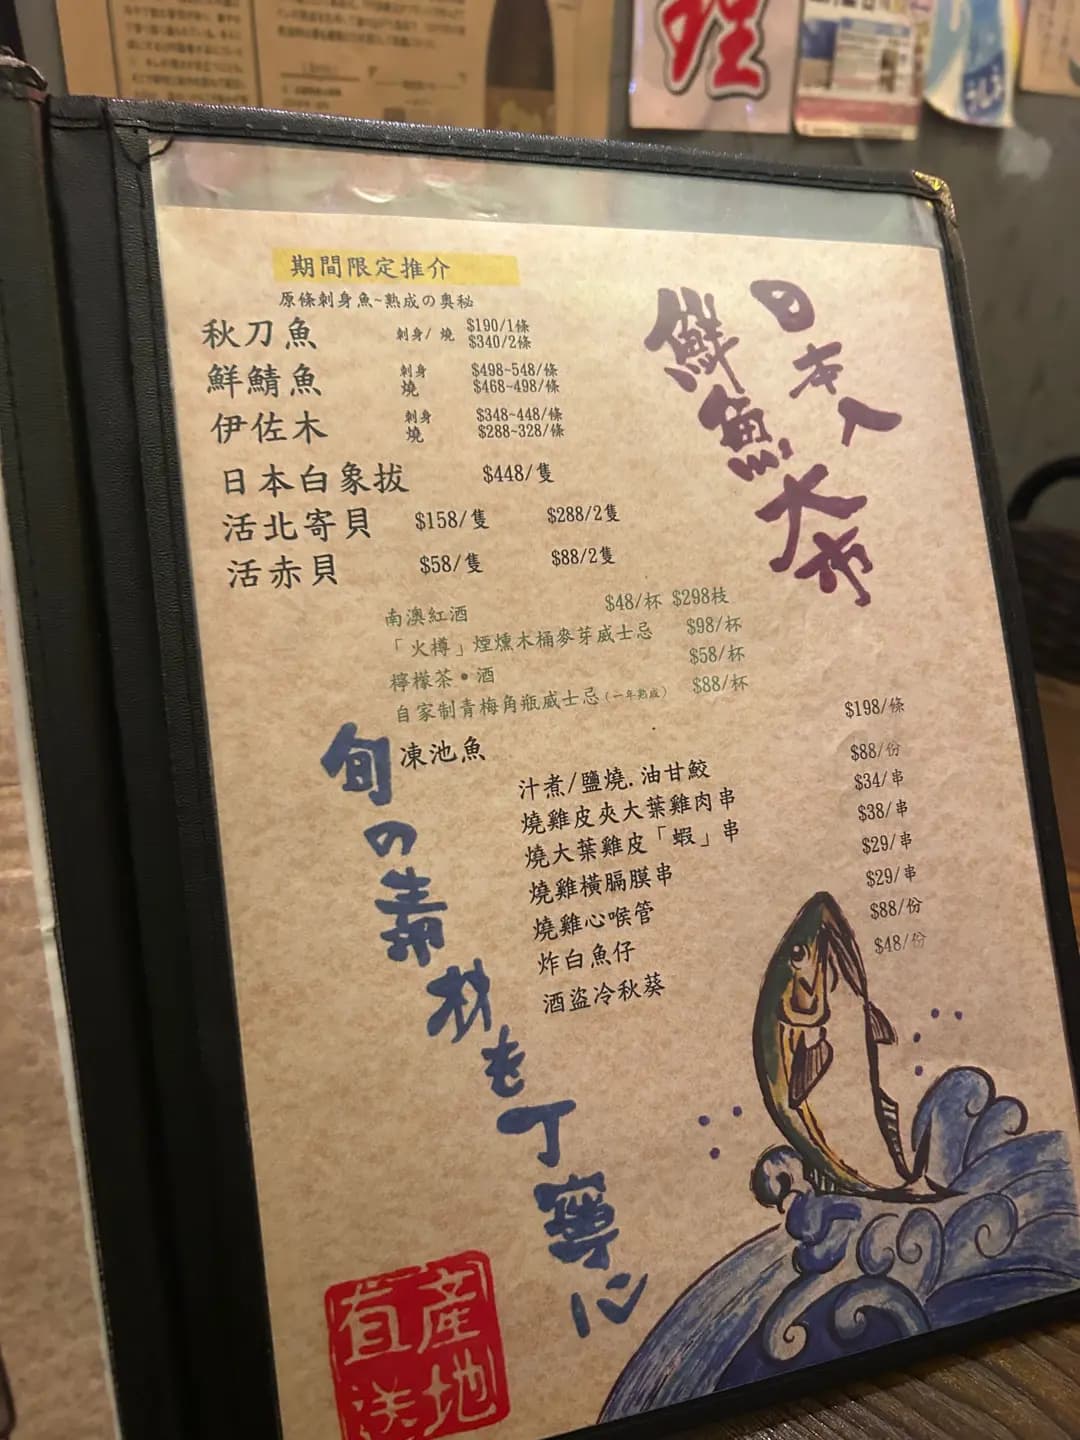 理
期間限定推介
原條刺身魚~熟成の奧秘
秋刀魚 刺身/燒 $190/1條
$340/2條
鮮鯖魚 刺身 $498~548/條
燒 $468~498/條
伊佐木 刺身 $348~448/條
燒 $288~328/條
日本白象拔 $448/隻
活北寄貝 $158/隻 $288/2隻
活赤貝 $58/隻 $88/2隻
日本人
鮮魚大市
南澳紅酒 $48/杯 $298枝
「火樽」煙燻木桶麥芽威士忌 $98/杯
檸檬茶•酒 $58/杯
自家制青梅角瓶威士忌(一年熟成) $88/杯
凍池魚 $198/條
汁煮/鹽燒.油甘鮫 $88/份
燒雞皮夾大葉雞肉串 $34/串
燒大葉雞皮「蝦」串 $38/串
燒雞橫膈膜串 $29/串
燒雞心喉管 $29/串
炸白魚仔 $88/份
酒盜冷秋葵 $48/份
旬の素材を丁寧に
產地
直送